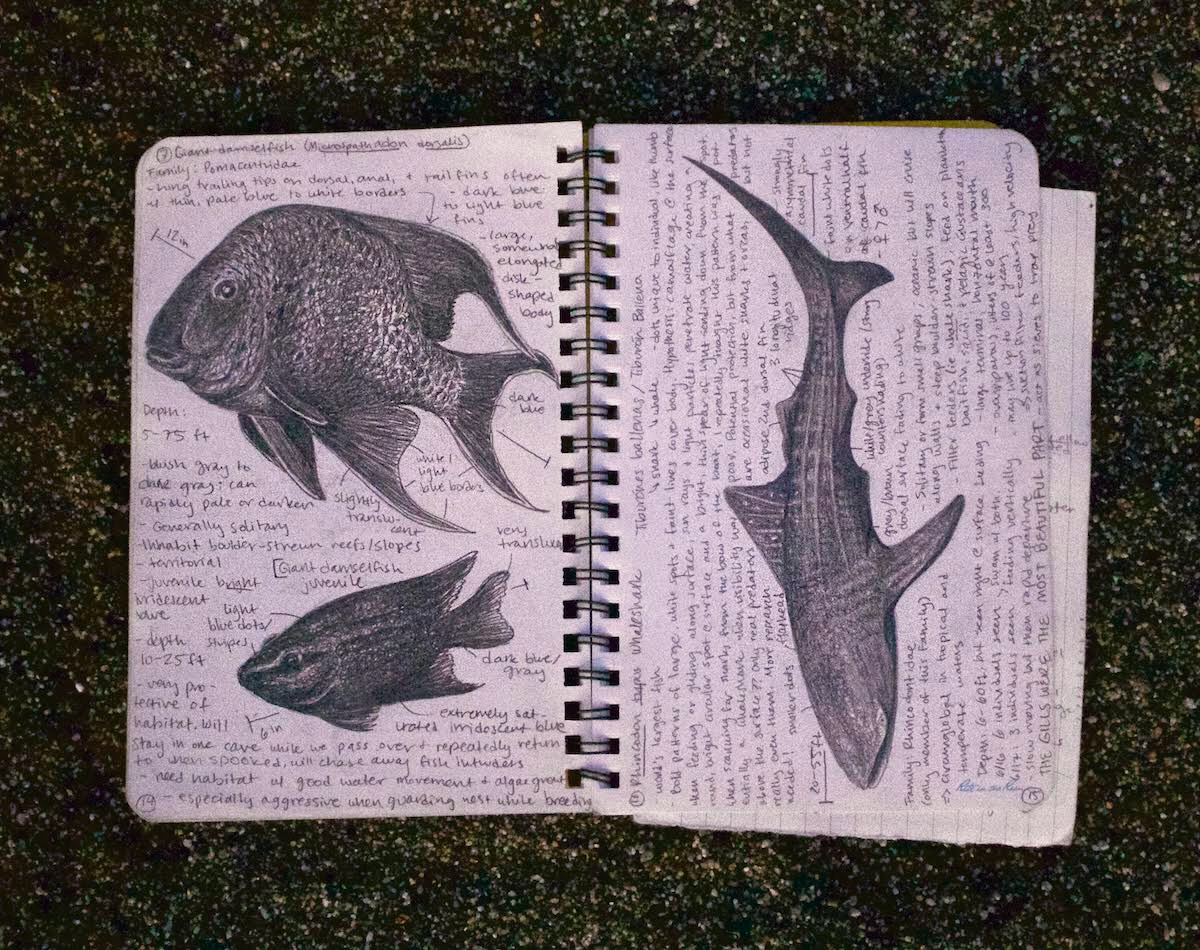 ⑦ Giant damselfish (Microspathadon dorsalis)
Family: Pomacentridae
- long trailing tips on dorsal, anal, + tail fins often
w/ thin, pale blue to white borders
- dark blue
to light blue
fins
12in
- large,
somewhat
elongated
disk-
shaped
body
dark
blue
Depth:
5-75 ft
white/
light
blue borders
slightly
translu-
cent
- bluish gray to
dark gray; can
rapidly pale or darken
- Generally solitary
- Inhabit boulder-strewn reefs/slopes
- territorial
- juvenile bright
iridescent
blue
very
translucent
[Giant damselfish
juvenile
light
blue dots/
stripes
- depth
10-25ft
dark blue/
gray
- very pro-
tective of
habitat. will
6in
extremely sat-
urated iridescent blue
stay in one cave while we pass over + repeatedly return
to when spooked, will chase away fish intruders
- need habitat w/ good water movement + algae growth
- especially aggressive when guarding nest while breeding
Rhincodon typus whaleshark Tiburones ballenas / Tiburón Ballena
world's largest fish
↳ shark ↳ whale
- dots unique to individual like thumb
bold patterns of large white spots + faint lines cover body. Hypothesis: camouflage @ the surface
when feeding or gliding along surface, sun rays + light particles penetrate water creating a
round, bright circular spot @ surface and a bright thin speck of light sending down from the spot.
when scanning for sharks from the bow of the boat, I repeatedly thought this pattern was pot-
entially a whaleshark when visibility was poor. Potential protection, but from what predators
above the surface?? only real predators are occasional white sharks + orcas, but not
really even them. More research
needed!
smaller dots/
forehead
20-55ft
adipose 2nd dorsal fin
3 longitudinal
ridges
strongly
asymmetrical
caudal fin
faint white dots
on ventral half
of caudal fin
♀ ♂
white/grey underside (strong
countershading)
gray/brown
dorsal surface fading to white
- Solitary or form small groups; oceanic but will cruise
along walls + steep boulder-strewn slopes
- Filter feeders (i.e. whale shark), feed on plankton
baitfish, squid, + pelagic crustaceans
- large terminal mouth
Family: Rhincodontidae
(only member of this family)
⇒ circumglobal in tropical and
temperate waters
Depth: 0-60ft, but seen mostly @ surface feeding
- ovoviviparous, litters of @ least 300
6/16 6 individuals seen > swam w/ both
may live up to 100 years
6/17 3 individuals seen > feeding vertically
↳ suction filter feeders, high velocity
slow moving but then rapid departure
THE GILLS WERE THE MOST BEAUTIFUL PART act as sieves to trap prey